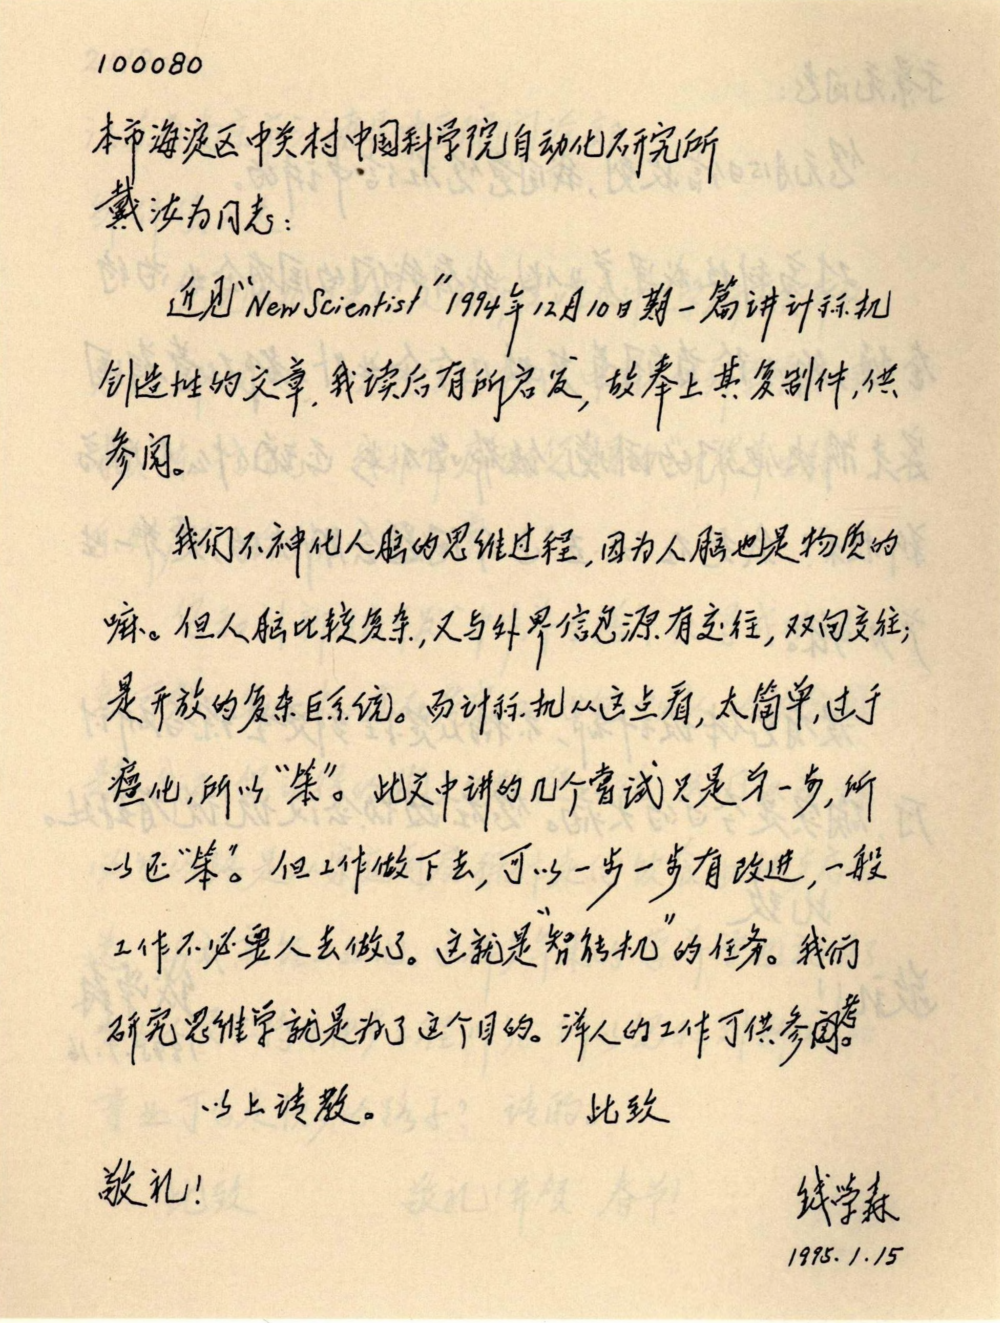 100080
本市海淀区中关村中国科学院自动化研究所
戴汝为同志：
近见“New Scientist”1994年12月10日期一篇讲计祘机
创造性的文章，我读后有所启发，故奉上其复制件，供
参阅。
我们不神化人脑的思维过程，因为人脑也是物质的
嘛。但人脑比较复杂，又与外界信息源有交往，双向交往；
是开放的复杂巨系统。而计祘机从这点看，太简单，过于
僵化，所以“笨”。此文中讲的几个尝试只是第一步，所
以还“笨”。但工作做下去，可以一步一步有改进，一般
工作不必要人去做了。这就是“智能机”的任务。我们
研究思维学就是为了这个目的。洋人的工作可供参考。
以上请教。 此致
敬礼！
钱学森
1995.1.15